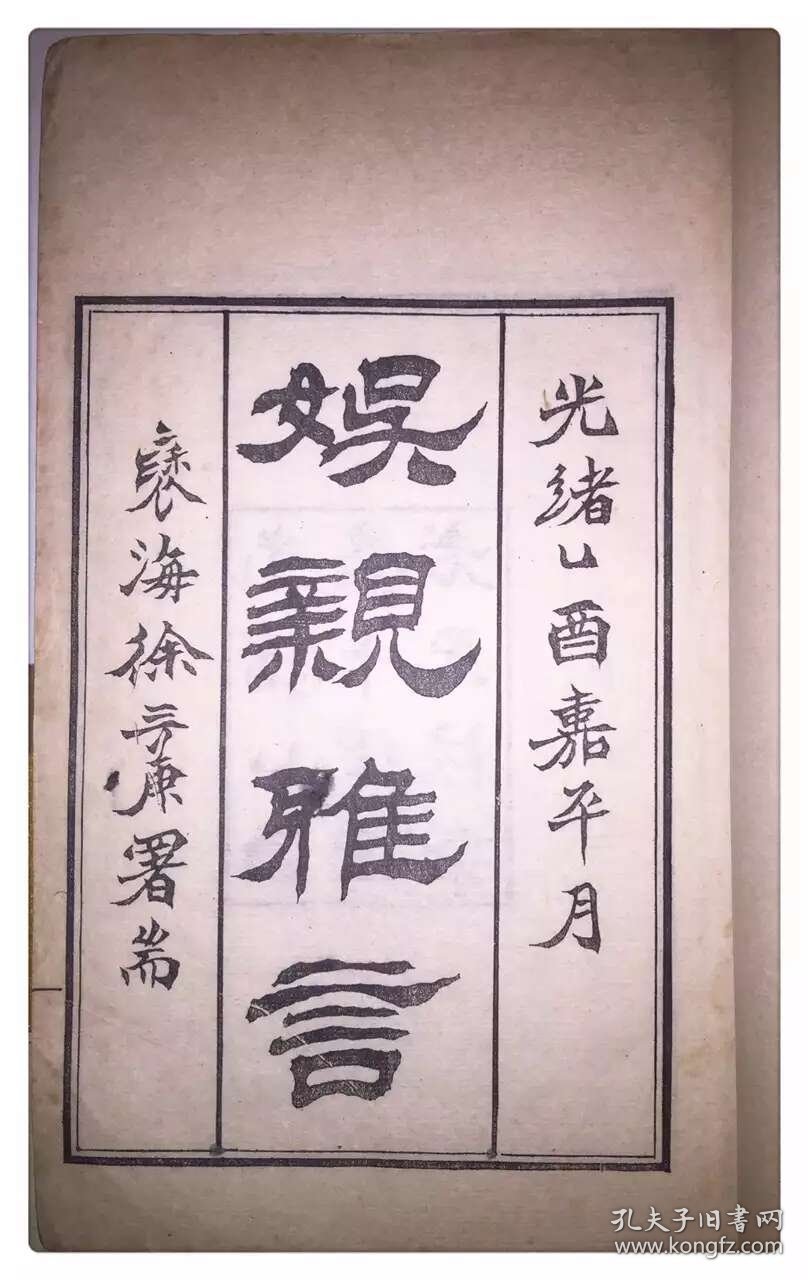 光緒乙酉嘉平月
娯親雅言
褎海徐三庚署耑
孔夫子旧書网
www.kongfz.com